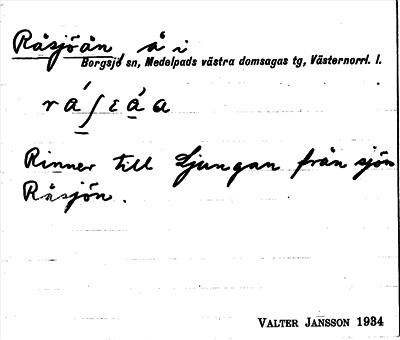 Råsjöån, å i
Borgsjö sn, Medelpads västra domsagas tg, Västernorrl. l.
rá̱ʃɛá̱a
Rinner till Ljungan från sjön
Råsjön.
VALTER JANSSON 1934